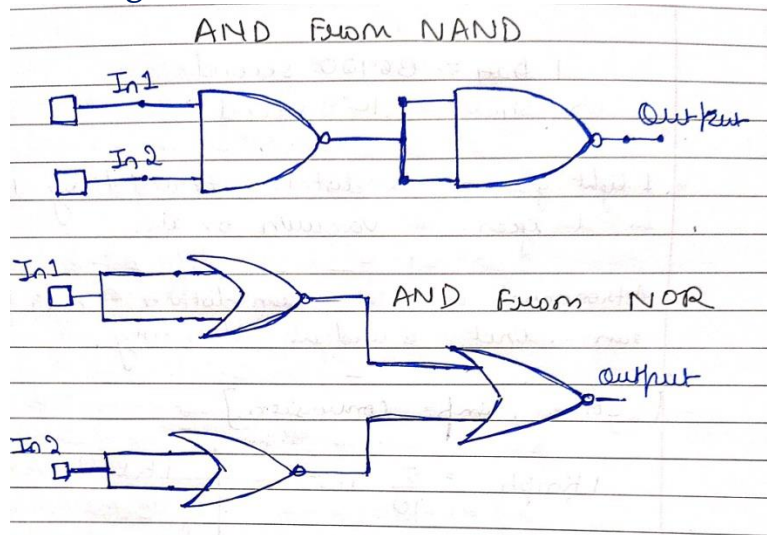 AND From NAND
In1
Output
In2
In1
AND From NOR
Output
In2